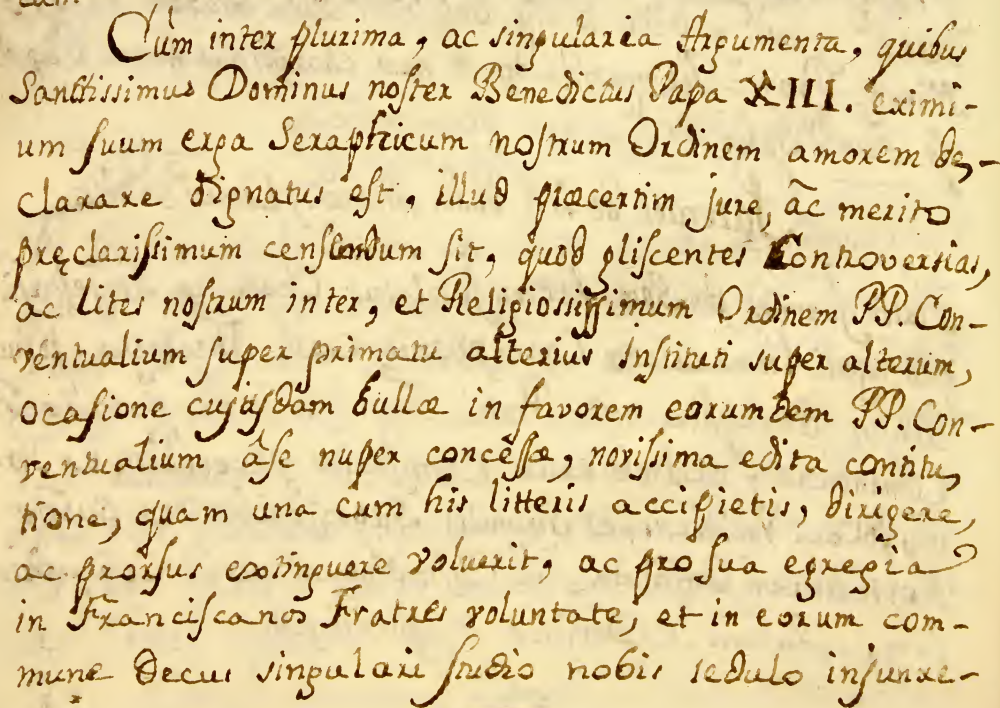 Cùm inter plurima, ac singularia Argumenta, quibus
Sanctissimus Dominus noster Benedictus Papa XIII. eximi-
um suum erga Seraphicum nostrum Ordinem amorem de,-
clarare dignatus est, illud præcertim jure, ac merito
pręclarissimum censendum sit, quod gliscentes Controversias,
ac lites nostrum inter, et Religiossissimum Ordinem PP. Con-
ventualium super primatu alterius Instituti super alterum,
Ocasione cujusdam bullæ in favorem eorumdem PP. Con-
ventualium âse nuper concéssæ, novissima edita contitu,
tione, quam una cum his litteris accipietis, dirigere,
ac prorsus extinguere voluerit, ac pro sua egregia
in Franciscanos Fratres voluntate, et in eorum com-
mune decus singulari studio nobis sedulo injunxe-